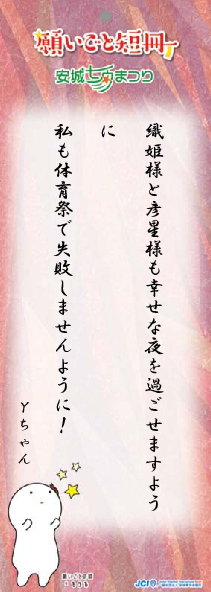 願いごと短冊
安城七夕まつり
織姫様と彦星様も幸せな夜を過ごせますよう
に
私も体育祭で失敗しませんように!
Yちゃん
願いごと妖精
JCI